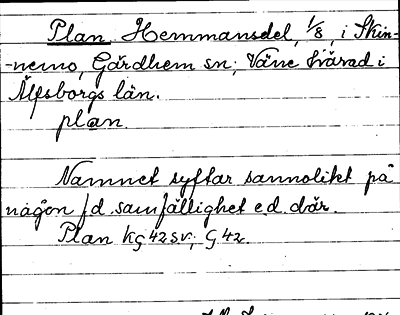 Plan Hemmansdel, 1/8, i Skin-
-nemo, Gärdhem sn; Väne härad i
Älfsborgs län.
plan.
Namnet syftar sannolikt på
någon f d. samfällighet e.d. där.
Plan kg 42 sv; G 42.